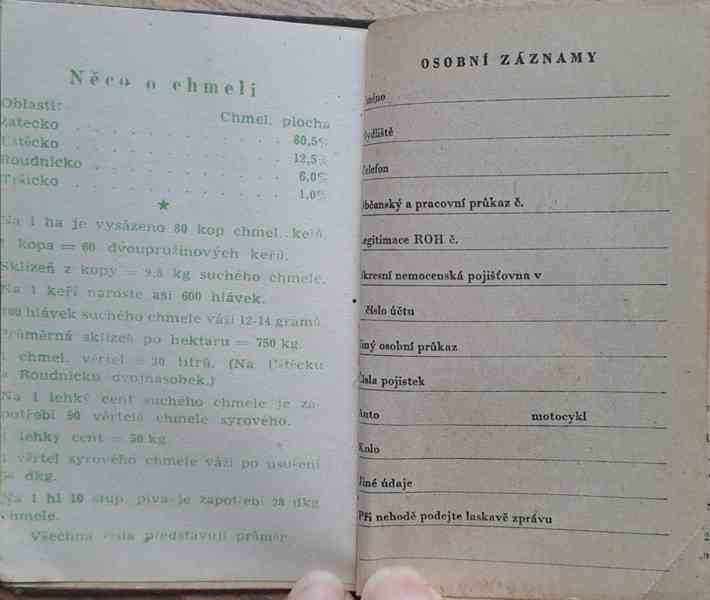 Něco o chmeli
Oblasti: Chmel. plocha
Žatecko . . . . . . . . . . 80,5%
Úštěcko . . . . . . . . . . 12,5%
Roudnicko . . . . . . . . . . 6,0%
Tršicko . . . . . . . . . . 1,0%
★
Na 1 ha je vysázeno 80 kop chmel. keřů.
1 kopa = 60 dvoupružinových keřů.
Sklizeň z kopy = 9,5 kg suchého chmele.
Na 1 keři naroste asi 600 hlávek.
100 hlávek suchého chmele váží 12-14 gramů.
Průměrná sklizeň po hektaru = 750 kg.
1 chmel. věrtel = 30 litrů. (Na Úštěcku
a Roudnicku dvojnásobek.)
Na 1 lehký cent suchého chmele je za-
potřebí 90 věrtelů chmele syrového.
1 lehký cent = 50 kg.
1 věrtel syrového chmele váží po usušení
dkg.
Na 1 hl 10 stup. piva je zapotřebí 28 dkg
chmele.
Všechna čísla představují průměr.
OSOBNÍ ZÁZNAMY
Jméno
Bydliště
Telefon
Občanský a pracovní průkaz č.
Legitimace ROH č.
Okresní nemocenská pojišťovna v
číslo účtu
Jiný osobní průkaz
Čísla pojistek
Auto motocykl
Kolo
Jiné údaje
Při nehodě podejte laskavě zprávu